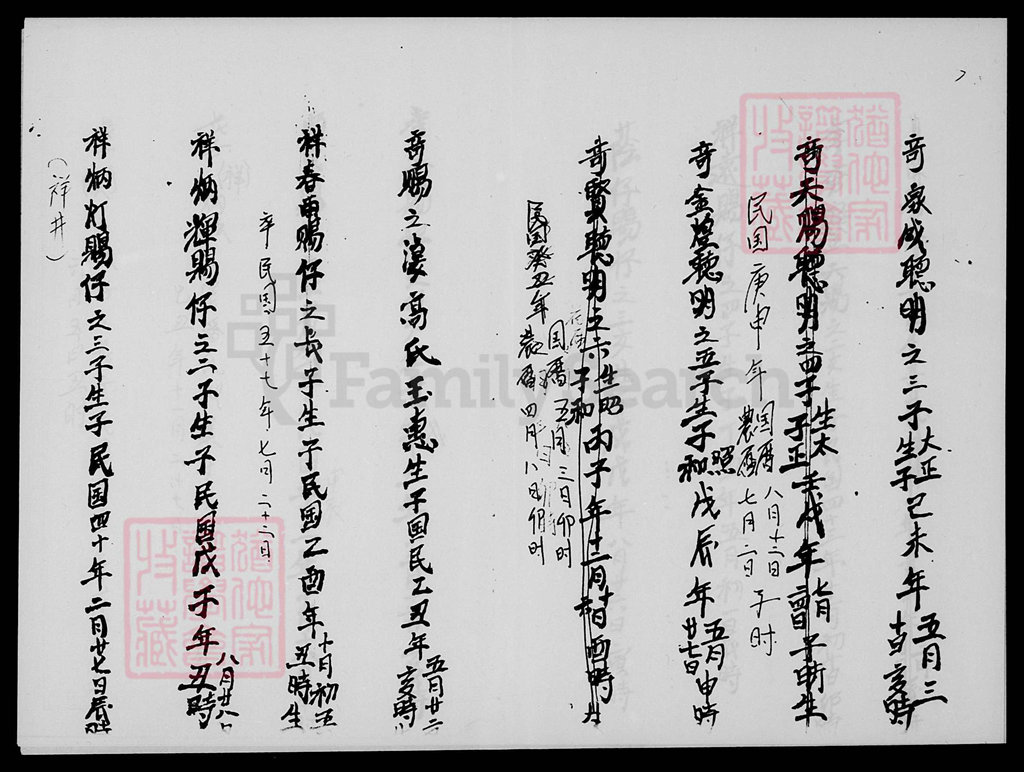 奇家成聰明之三子大正生于己未年五月三十日亥時
奇天賜聰明之四子生太于正壬戌年七月二日子時生
民国庚申年国曆八月十二日農曆七月二日子时
奇金煌聰明之五子生于照和戊辰年五月廿七日申時
奇賢聰明之六子生昭和丙子年十二月十日酉時生
国曆五月三日卯时
民国癸丑年農曆四月八日卯时
奇賜之凄高氏玉惠生于国民乙丑年五月廿二亥時
祥春雨賜仔之長子生于民國乙酉年十月初五丑時生
卒民国五十七年七月二十三日
祥炳輝賜仔之二子生于民國戊子年八月廿八日丑時
祥炳灯賜仔之三子生于民国四十年二月廿七日辰時
（祥井）
FamilySearch